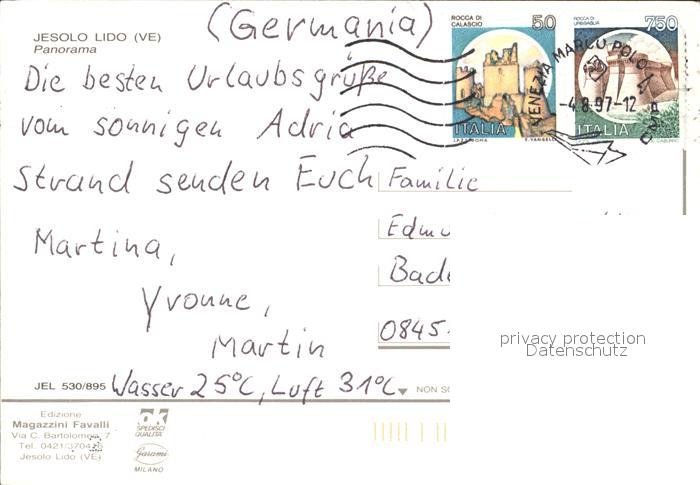 (Germania)
JESOLO LIDO (VE)
Panorama
ROCCA DI
CALASCIO
50
ITALIA
ROCCA DI
URBISAGLIA
750
ITALIA
VENEZIA MARCO POLO
-4.8.97-12
Die besten Urlaubsgrüße
vom sonnigen Adria
Strand senden Euch
Martina,
Yvonne,
Martin
Wasser 25°C, Luft 31°C
Familie
Edmu
Bade
0845
privacy protection
Datenschutz
JEL 530/895
NON
Edizione
Magazzini Favalli
Via C. Bartolomeo, 7
Jesolo Lido (VE)
OK
SPEDISCI
QUALITÀ
Garami
MILANO